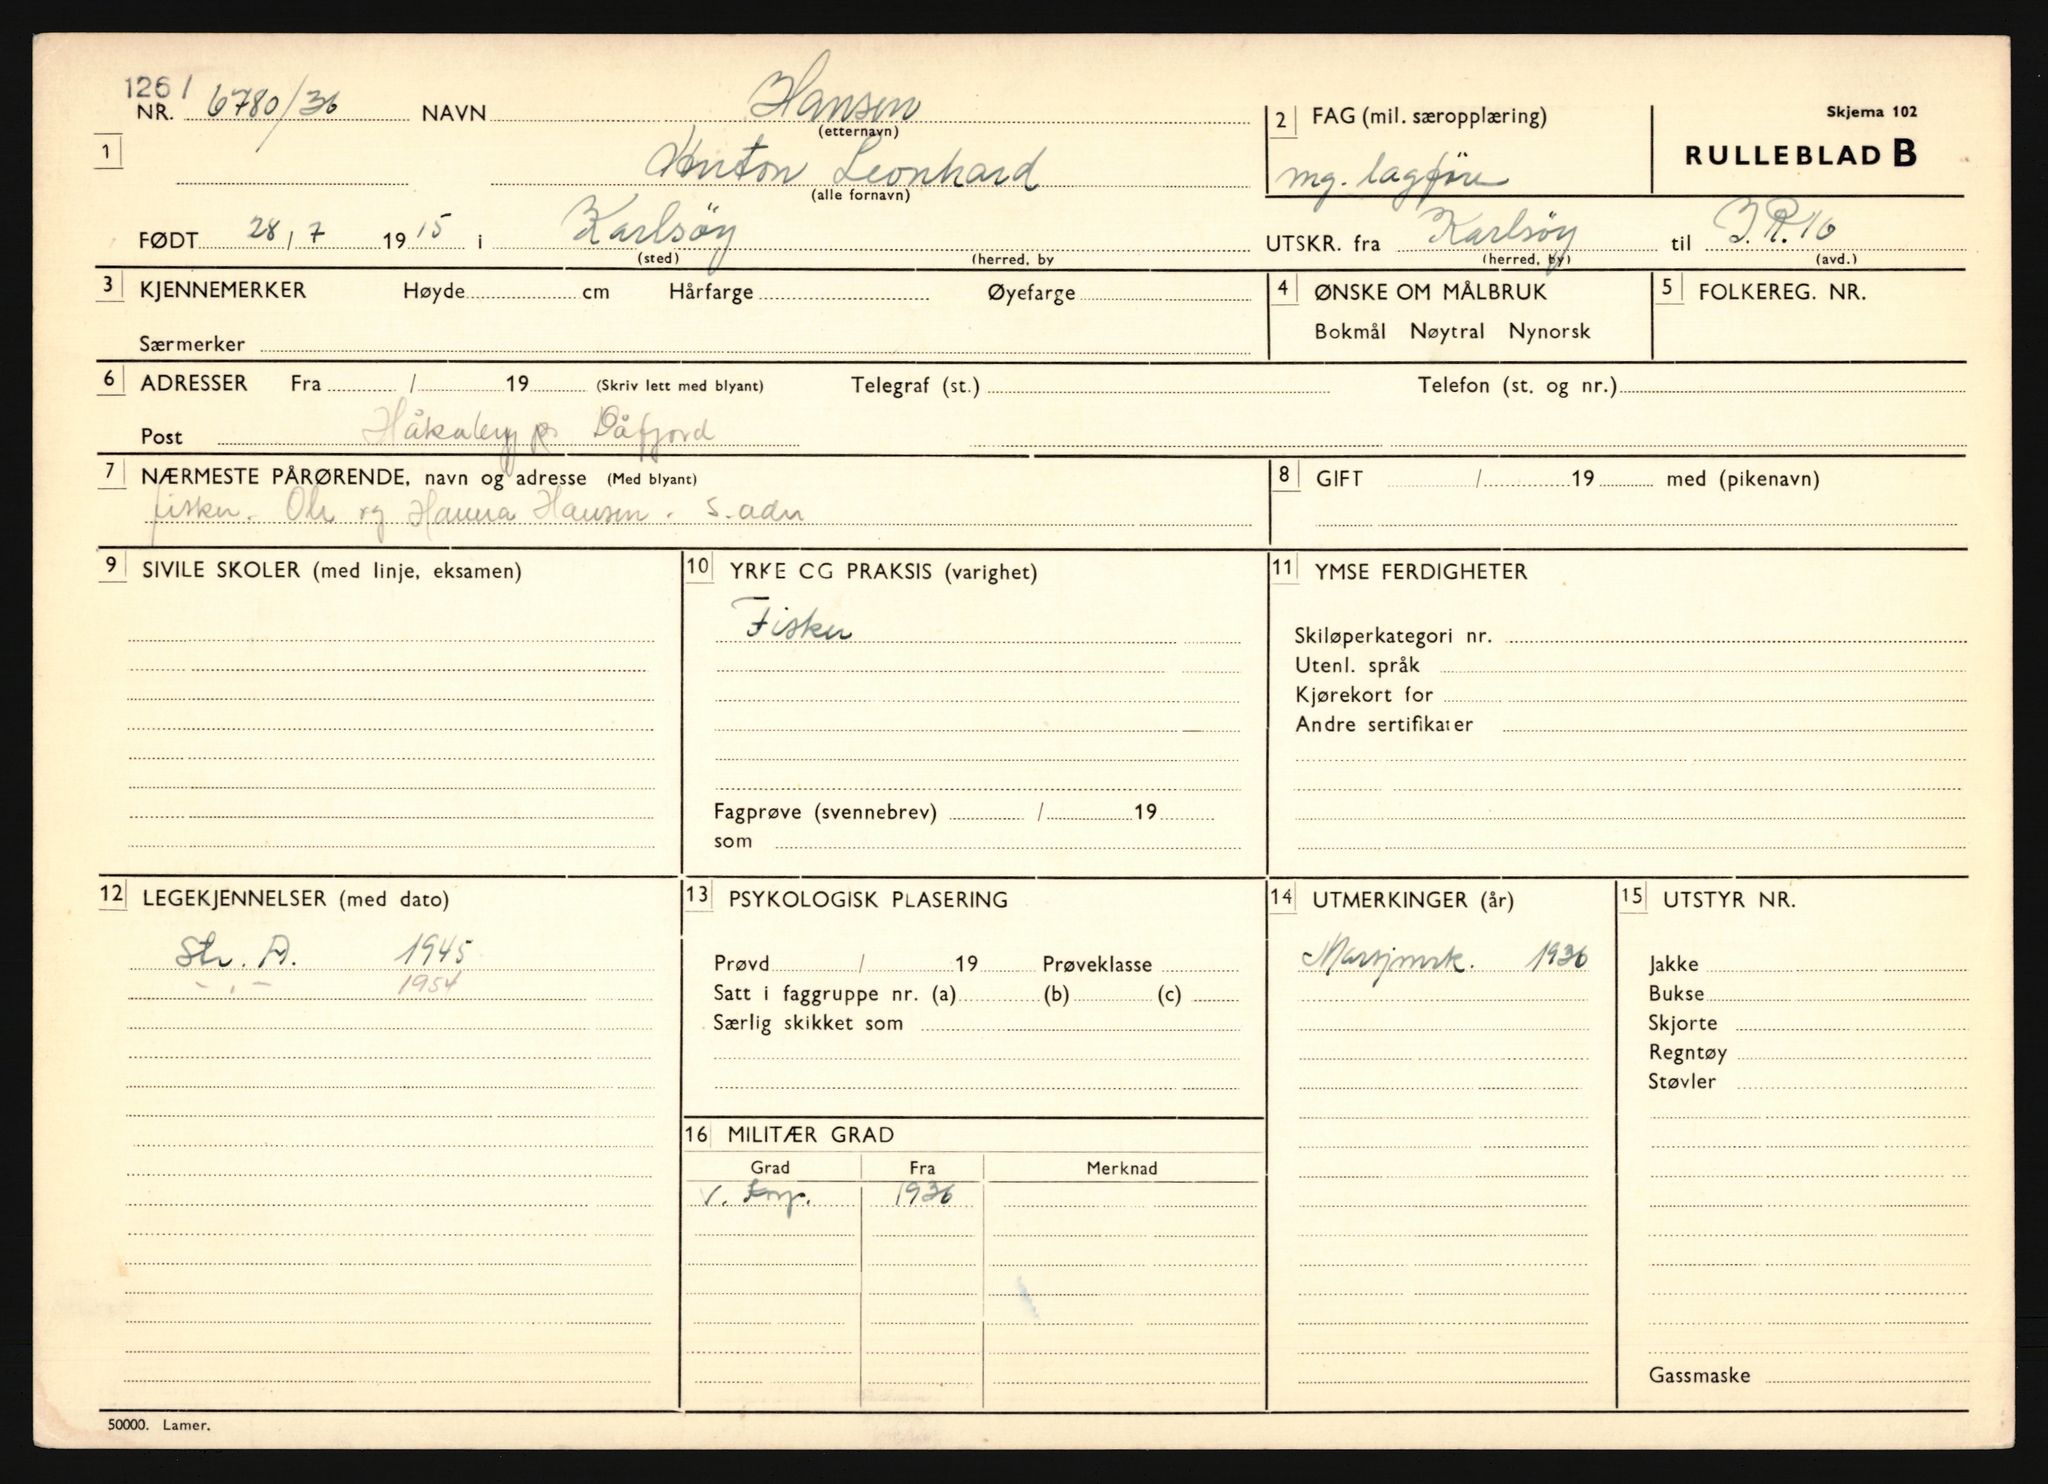 1261
NR. 6780/36 NAVN Hansen
(etternavn)
1 Anton Leonhard
(alle fornavn)
2 FAG (mil. særopplæring)
mg. lagføre
Skjema 102
RULLEBLAD B
FØDT 28/7 1915 i Karlsöy
(sted) (herred, by
UTSKR. fra Karlsöy til I.R.16
(herred, by) (avd.)
3 KJENNEMERKER Høyde cm Hårfarge Øyefarge
Særmerker
4 ØNSKE OM MÅLBRUK
Bokmål Nøytral Nynorsk
5 FOLKEREG. NR.
6 ADRESSER Fra / 19 (Skriv lett med blyant) Telegraf (st.) Telefon (st. og nr.)
Post Dåfjord
7 NÆRMESTE PÅRØRENDE, navn og adresse (Med blyant)
fisker. Ole og Hanna Hansen. s. adr
8 GIFT / 19 med (pikenavn)
9 SIVILE SKOLER (med linje, eksamen)
10 YRKE OG PRAKSIS (varighet)
Fisker
Fagprøve (svennebrev) / 19
som
11 YMSE FERDIGHETER
Skiløperkategori nr.
Utenl. språk
Kjørekort for
Andre sertifikater
12 LEGEKJENNELSER (med dato)
Str. A. 1945
- " - 1954
13 PSYKOLOGISK PLASERING
Prøvd / 19 Prøveklasse
Satt i faggruppe nr. (a) (b) (c)
Særlig skikket som
14 UTMERKINGER (år)
Marsjmrk. 1936
15 UTSTYR NR.
Jakke
Bukse
Skjorte
Regntøy
Støvler
Gassmaske
16 MILITÆR GRAD
Grad Fra Merknad
v. korp. 1936
50000. Lamer.